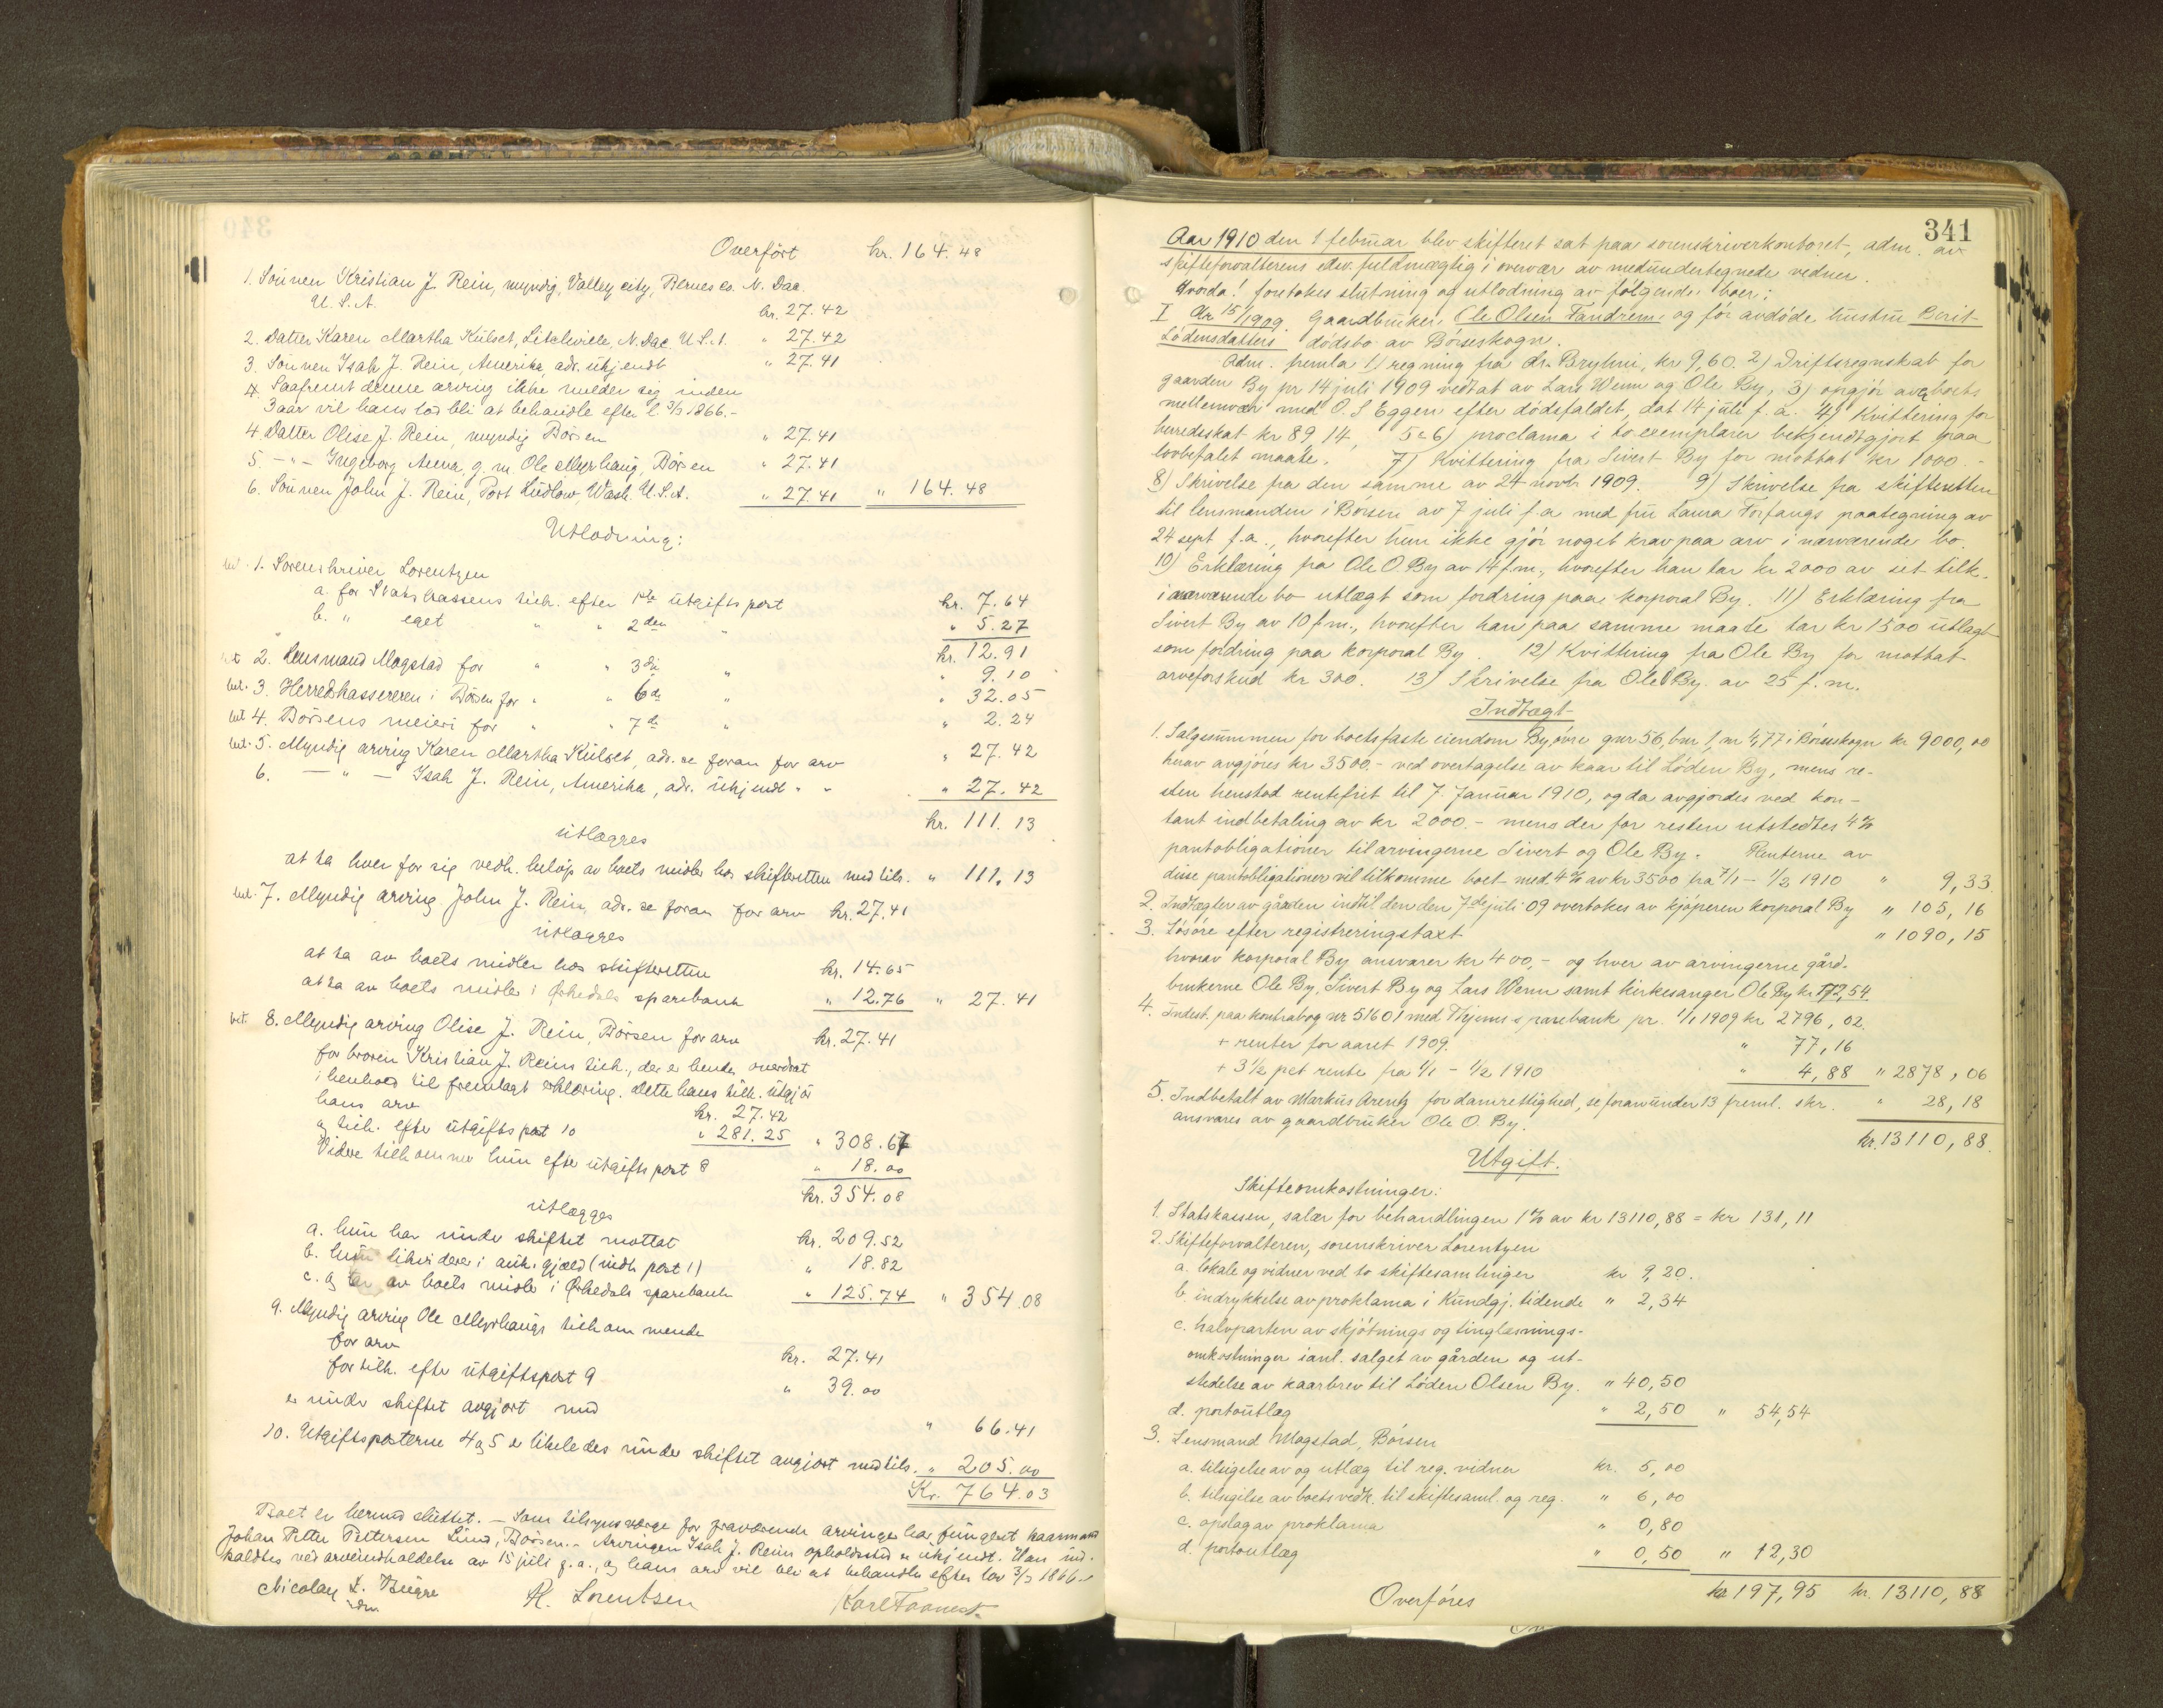 Overført kr. 164.48
1. Sönnen Kristian J. Rein, myndig, Valley city, Barnes co. N. Dac.
U.S.A. kr. 27.42
2. Datter Karen Martha Külset, Litchwiele, N. Dac. U.S.A. " 27.42
3. Sönnen Isak J. Rein, Amerika, adr. ukjendt " 27.41
Saafremt denne arving ikke melder sig inden
3 aar vil hans lod bli at behandle efter l. 3/3 1866.-
4. Datter Olise J. Rein, myndig Börsen " 27.41
5. - " - Ingeborg Anna, g. m. Ole Myrhaug, Börsen " 27.41
6. Sönnen John J. Rein, Port Ludlow Wash. U.S.A. " 27.41 " 164.48
Utlodning:
bet. 1. Sorenskriver Lorentzen
a. for Statskassens tilk. efter 1ste utgiftspost kr. 7.64
b. " eget " " 2den " " 5.27
kr. 12.91
bet. 2. Lensmand Mogstad for " " 3die " " 9.10
bet. 3. Herredskassereren i Börsen for " " 6te " " 32.05
bet. 4. Börsens meieri for " " 7de " " 2.24
bet. 5. Myndig arving Karen Martha Külset, adr. se foran for arv " 27.42
6. - " - Isak J. Rein, Amerika, adr. ukjendt " " " 27.42
kr. 111.13
utlægges
at ta hver for sig vedk. beløp av boets midler hos skifteretten med tils. " 111.13
bet. 7. Myndig arving John J. Rein, adr. se foran for arv kr. 27.41
utlægges
at ta av boets midler hos skifteretten kr. 14.65
at ta av boets midler i Orkedals sparebank " 12.76 " 27.41
bet. 8. Myndig arving Olise J. Rein, Börsen for arv kr. 27.41
for broren Kristian J. Reins tilk., der er hende overdrat
i henhold til fremlagt erklæring. Dette hans tilk. utgjör
hans arv kr. 27.42
og tilk. efter utgiftspost 10 " 281.25 " 308.67
Videre tilkommer hun efter utgiftspost 8 " 18.00
kr. 354.08
utlægges
a. hun har under skiftet mottat kr. 209.52
b. hun likviderer i anm. gjæld (indt. post 1) " 18.82
c. og tar av boets midler i Orkedals sparebank " 125.74 " 354.08
9. Myndig arving Ole Myrhaugs tilkommende
for arv kr. 27.41
for tilk. efter utgiftspost 9 " 39.00
er under skiftet avgjort med " 66.41
10. Utgiftsposterne 4 og 5 er likeledes under skiftet avgjort med tils. " 205.00
Kr. 764.03
Boet er hermed sluttet. - Som tilsynsværge for fraværende arvinger har fungeret kaarmand
Johan Petter Pettersen Lund, Börsen. - Arvingen Isak J. Reins opholdssted er ukjendt. Han ind-
kaldtes ved arveindkaldelse av 15 juli f.a., og hans arv vil bli at behandle efter lov 3/3 1866.-
Nicolay L. Bugge
adm.
H. Lorentsen
Karl Faanest
341
Aar 1910 den 1 februar blev skifteret sat paa sorenskriverkontoret, adm. av
skifteforvalterens edsv. fuldmægtig i overvær av medundertegnede vidner.
Hvorda! foretokes slutning og utlodning av følgende boer:
I Nr 15/1909. Gaardbruker Ole Olsen Fandrem og før avdøde hustru Berit
Lödensdatters dødsbo av Börseskogn.
Adm. fremla 1) regning fra dr. Bryhni, kr 9,60. 2) Driftsregnskab for
gaarden By pr 14 juli 1909 vedtat av Lars Wenn og Ole By, 3) opgjör av boets
mellemvær med O. S. Eggen efter dödsfaldet, dat 14 juli f.a. 4) Kvittering for
herredsskat kr 89,14, 5 & 6) proclama i to exemplarer bekjendtgjort paa
lovbefalet maate. 7) Kvittering fra Sivert By for mottat kr 1000.-
8) Skrivelse fra den samme av 24 novb. 1909. 9) Skrivelse fra skifteretten
til lensmanden i Börsen av 7 juli f.a. med fru Laura Forfangs paategning av
24 sept f.a., hvorefter hun ikke gjör noget krav paa arv i nærværende bo.
10) Erklæring fra Ole O. By av 14 f.m., hvorefter han tar kr 2000 av sit tilk.
i nærværende bo utlægt som fordring paa korporal By. 11) Erklæring fra
Sivert By av 10 f.m., hvorefter han paa samme maate tar kr 1500 utlagt
som fordring paa korporal By. 12) Kvittering fra Ole By for mottat
arveforskud kr 300. 13) Skrivelse fra Ole By av 25 f.m.
Indtægt
1. Salgssummen for boets faste eiendom By övre gnr 56, bnr 1, m 4,77 i Börseskogn kr 9000,00
hvorav avgjöres kr 3500.- ved overtagelse av kaar til Löden By, mens re-
sten henstod rentefrit til 7 Januar 1910, og da avgjordes ved kon-
tant indbetaling av kr 2000.- mens der for resten utstedtes 4%
pantobligationer til arvingerne Sivert og Ole By. Renterne av
disse pantobligationer vil tilkomme boet med 4% av kr 3500 fra 7/1 - 1/2 1910 " 9,33.
2. Indtægter av gården indtil den den 7de juli 09 overtokes av kjöperen korporal By " 105,16
3. Lösöre efter registreringstaxt " 1090,15
hvorav korporal By ansvarer kr 400,- og hver av arvingerne gård-
brukerne Ole By, Sivert By og Lars Wenn samt kirkesanger Ole By kr 172,54.
4. Indest. paa kontrabog nr 51601 med Thjems sparebank pr. 1/1 1909 kr 2796,02.
+ renter for aaret 1909. " 77,16
+ 3½ pct rente fra 1/1 - 1/2 1910 " 4,88 " 2878,06
5. Indbetalt av Markus Arentz for damrettighed, se foran under 13 freml. skr. " 28,18
ansvares av gaardbruker Ole O. By.
kr. 13110,88.
Utgift.
Skifteomkostninger:
1. Statskassen, salær for behandlingen 1% av kr 13110,88 = kr 131,11
2. Skifteforvalteren, sorenskriver Lorentzen
a. lokale og vidner ved to skiftesamlinger kr 9,20.
b. indrykkelse av proklama i Kundgj. tidende " 2,34
c. halvparten av skjötnings og tinglæsnings-
omkostninger i anl. salget av gården og ut-
stedelse av kaarbrev til Löden Olsen By. " 40,50
d. portoutlæg " 2,50 " 54,54
3. Lensmand Mogstad, Börsen
a. tilsigelse av og utlæg til reg. vidner kr. 5,00
b. tilsigelse av boets vedk. til skiftesaml. og reg. " 6,00
c. opslag av proklama " 0,80
d. portoutlæg " 0,50 " 12,30
Overføres kr 197,95 kr. 13110,88